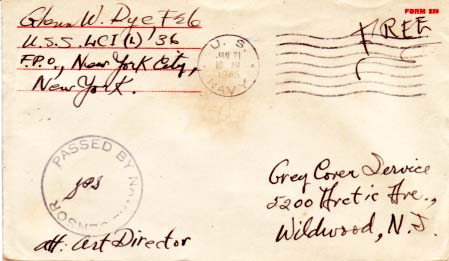 FORM 539
Glenn W. Dye F 2/c
U.S.S. LCI (L) 36
F.P.O., New York City,
New York.
U. S.
JAN 21
10 AM
NAVY
FREE
PASSED BY NAVAL CENSOR
Att: Art Director
Grey Cover Service
5200 Arctic Ave.,
Wildwood, N. J.